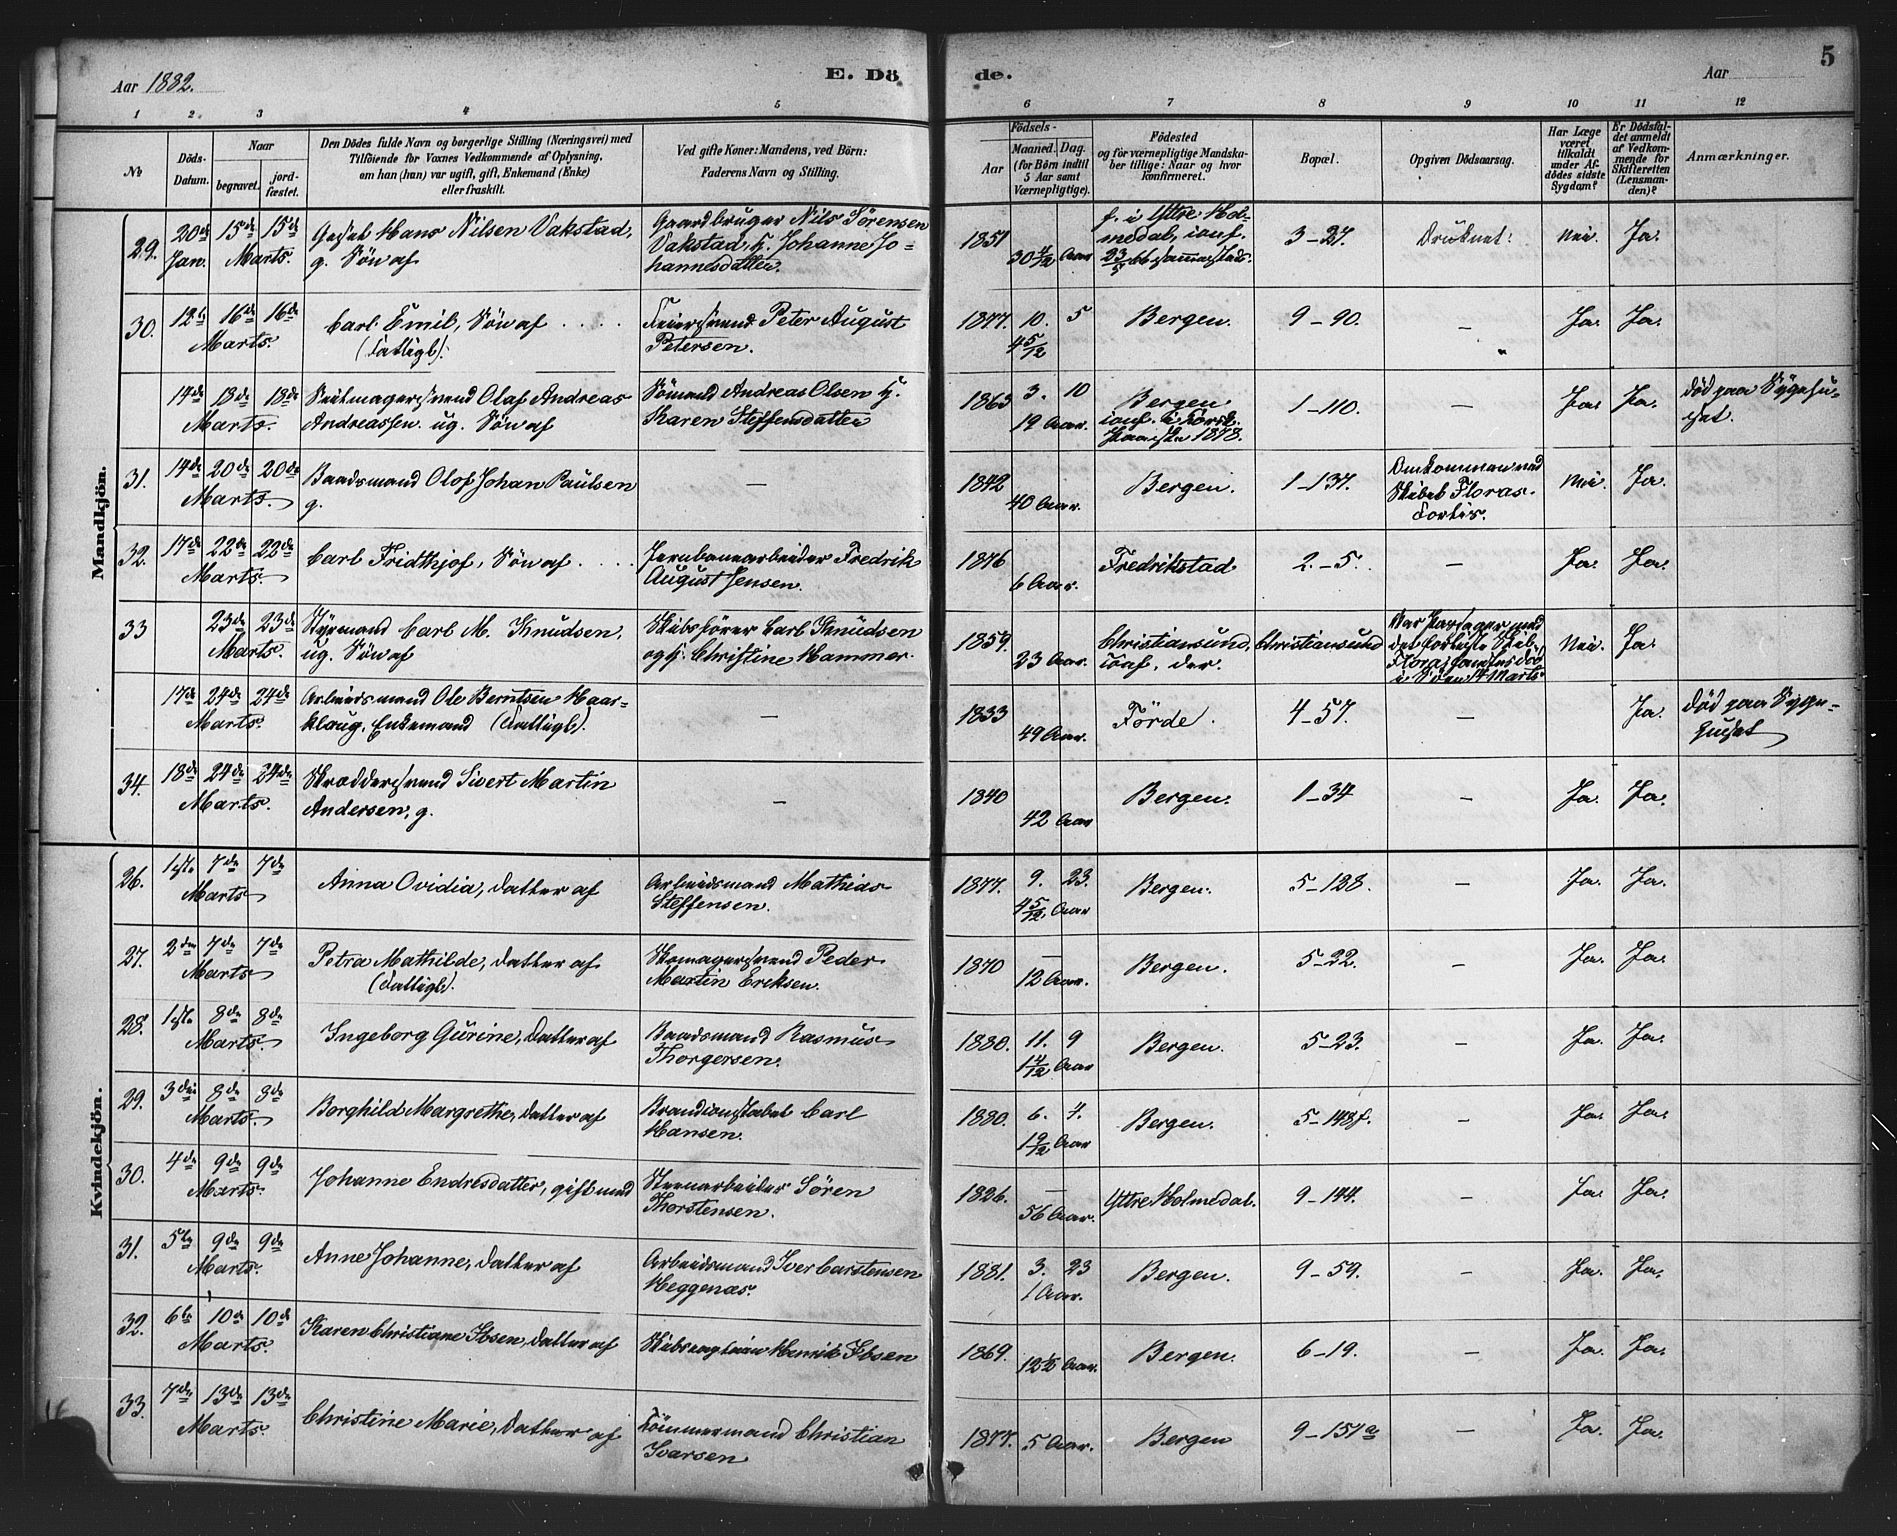 Aar 1882.
E. Dö
de.
Aar
5
1 2 3 4 5 6 7 8 9 10 11 12
№
Döds-Datum.
Naar
begravet. jord-fæstet.
Den Dödes fulde Navn og borgerlige Stilling (Næringsvei) med
Tilföiende for Voxnes Vedkommende af Oplysning,
om han (hun) var ugift, gift, Enkemand (Enke)
eller fraskilt.
Ved gifte Koner: Mandens, ved Börn:
Faderens Navn og Stilling.
Födsels-
Aar Maaned. Dag.
(for Börn indtil
5 Aar samt
Værnepligtige).
Födested
og for værnepligtige Mandska-
ber tillige: Naar og hvor
konfirmeret.
Bopæl.
Opgiven Dödsaarsag.
Har Læge
været
tilkaldt
under Af-
dödes sidste
Sygdom?
Er Dödsfal-
det anmeldt
af Vedkom-
mende for
Skifteretten
(Lensman-
den)?
Anmærkninger.
Mandkjön.
29. 20de Jan. 15de 15de Marts. Hans Nilsen Vakstad, g. Sön af
Gaardbruger Nils Sörensen
Vakstad, H. Johanne Jo-
hannesdatter.
1851 30 4/12 Aar f. i Ytre Hol-
medal, conf.
3-27. Druknet. Nei. Ja.
30. 12te 16de 16de Marts. Carl Emil, Sön af . . . .
(Fattigl).
Feiersvend Peter August
Petersen.
1877. 10. 5 4 5/12 Bergen. 9-90. – Ja. Ja.
14de 18de 18de Marts. Olaf Andreas
Andreassen. ug. Sön af
Sömand Andreas Olsen H.
Karen Steffensdatter
1863 3. 10 19 Aar. Bergen
conf. 1878.
1-110. – Ja. Ja. död paa Sygehu-
set.
31. 14de 20de 20de Marts. Baadsmand Olaf Johan Paulsen
g.
–
1842 40 Aar. Bergen. 1-137. Omkommen med
Skibet Floras
Forlis.
Nei. Ja.
32. 17de 22de 22de Marts. Carl Fridthjof, Sön af . . . .
Jernbanearbeider Fredrik
August Jensen.
1876 6 Aar. Fredrikstad 2.-5. – Ja. Ja.
33 23de 23de Marts. Styrmand Carl M. Knudsen,
ug. Sön af
Skibsförer Carl Knudsen
og H. Christine Hammer.
1859. 23 Aar. Christiansund,
conf. der.
Christiansund
Var Passager med
det forliste Skib
Flora,
Nei. Ja.
17de 24de 24de Marts. Arbeidsmand Ole Berntsen Haar-
klaug, Enkemand (Fattigl).
–
1833 49 Aar. Förde. 4-57. – Ja. död paa Syge-
huset
34. 18de 24de 24de Marts. Skræddersvend Sivert Martin
Andersen, g.
–
1840 42 Aar Bergen. 1-34 – Ja. Ja.
Kvindekjön.
26. 1ste 7de 7de Marts Anna Ovidia, datter af
Arbeidsmand Mathias
Steffensen.
1877. 9. 23. 4 5/12 Aar Bergen. 5-128. – Ja. Ja.
27. 2den 7de 7de Marts Petra Mathilde, datter af
(Fattigl).
Skomagersvend Peder
Martin Eriksen.
1870 – 12 Aar. Bergen. 5-22. – Ja. Ja.
28. 1ste 8de 8de Marts. Ingeborg Gurine, datter af
Baadsmand Rasmus
Thorgersen.
1880. 11. 9 1 4/12 Aar Bergen. 5-23. – Ja. Ja.
29. 3die 8de 8de Marts. Borghild Margrethe, datter af
Brandconstabel Carl
Hansen.
1880. 6. 4. 1 9/12 Aar Bergen. 5-148f. – Ja. Ja.
30. 4de 9de 9de Marts. Johanne Endresdatter, gift med
Stenarbeider Sören
Thorstensen.
1826. – 56 Aar. Ytre Holmedal. 9-144. – Ja. Ja.
31. 5te 9de 9de Marts. Anne Johanne, datter af
Arbeidsmand Iver Carstensen
Heggenæs.
1881. 3. 23 1 Aar. Bergen. 9-59. – Ja. Ja.
32. 6te 10de 10de Marts. Karen Christiane Ibsen, datter af
Skibscaptein Henrik Ibsen
1869. 12 1/2 Aar. Bergen. 6-19. – Ja. Ja.
33. 7de 13de 13de Marts Christine Marie, datter af
Tömmermand Christian
Ivarsen
1877. 5 Aar. Bergen 9-157a – Ja. Ja.